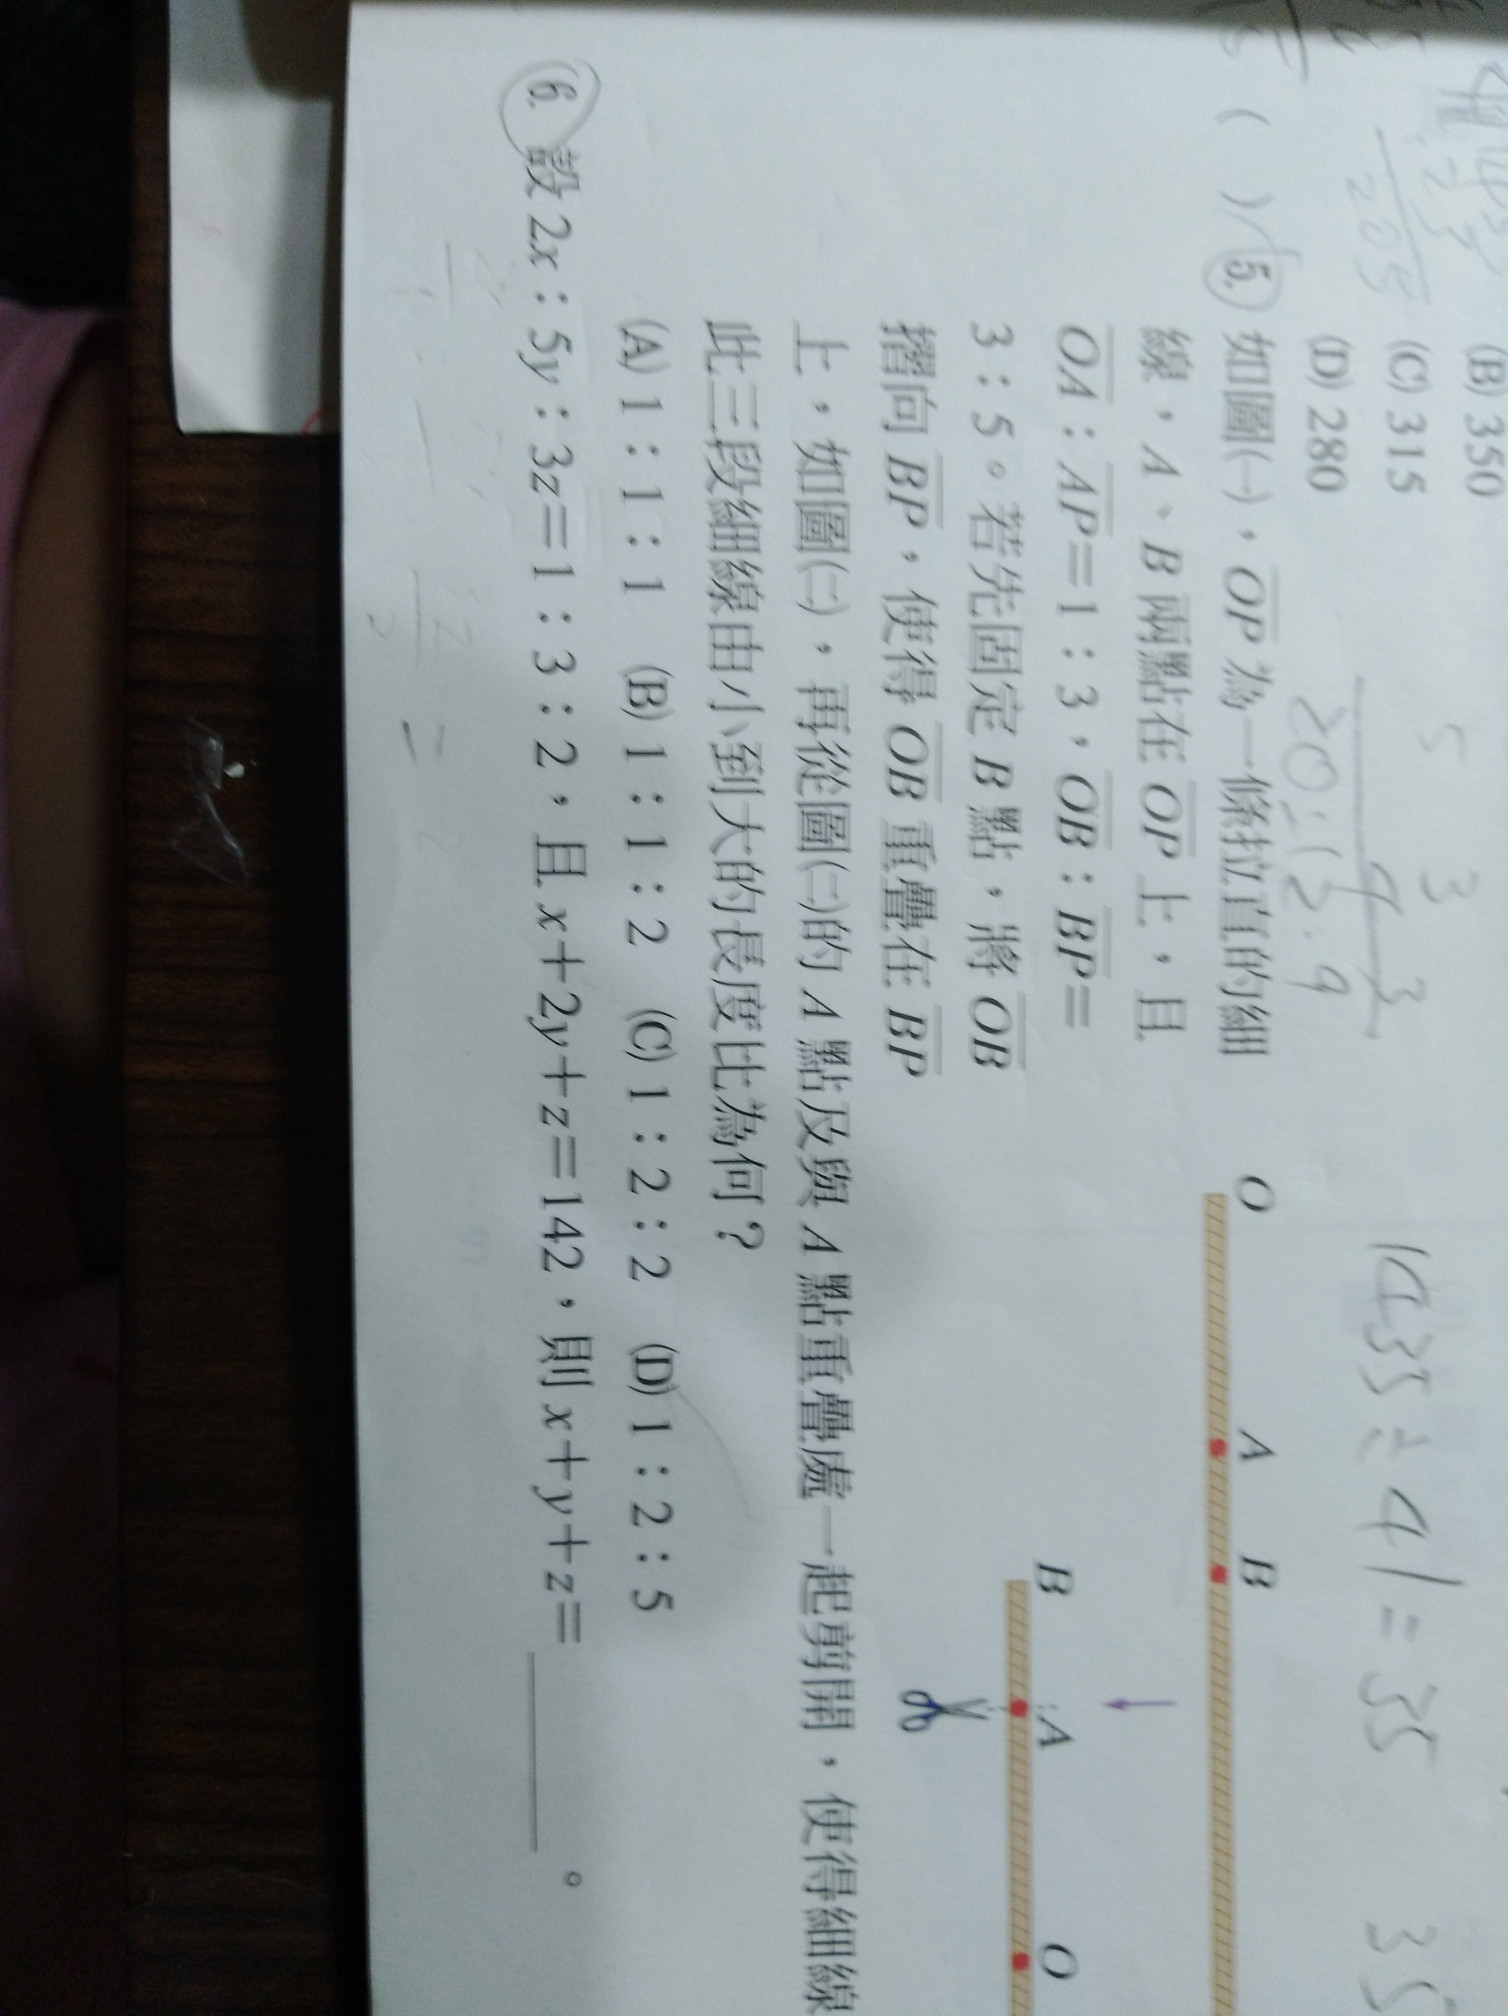 (B) 350
(C) 315
(D) 280
20:12:9
1435÷41=35
( ) 5. 如圖㈠，OP 為一條拉直的細
線，A、B 兩點在 OP 上，且
OA：AP＝1：3，OB：BP＝
3：5。若先固定 B 點，將 OB
摺向 BP，使得 OB 重疊在 BP
上，如圖㈡，再從圖㈡的 A 點及與 A 點重疊處一起剪開，使得細線
此三段細線由小到大的長度比為何？
O A B
B A O
(A) 1：1：1 (B) 1：1：2 (C) 1：2：2 (D) 1：2：5
6. 設 2x：5y：3z＝1：3：2，且 x＋2y＋z＝142，則 x＋y＋z＝。